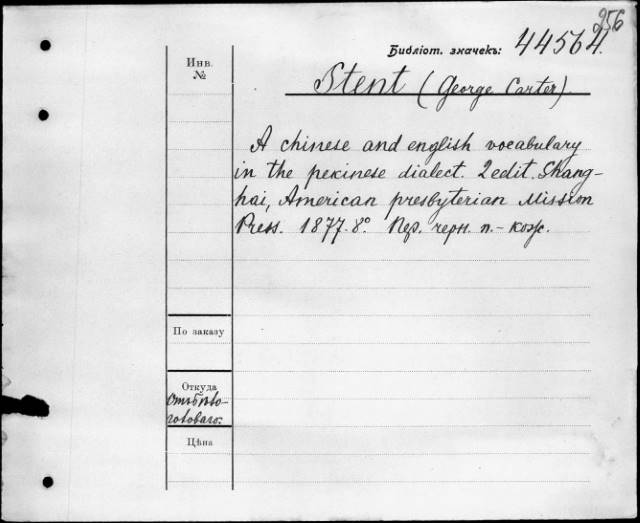 256
Библіот. значекъ: 44564.
Инв.
№
Stent (George Carter)
A chinese and english vocabulary
in the pekinese dialect. 2 edit. Shang-
hai, American presbyterian Mission
Press. 1877. 8º. Пер. черн. п.-кож.
По заказу
Откуда
Цѣна